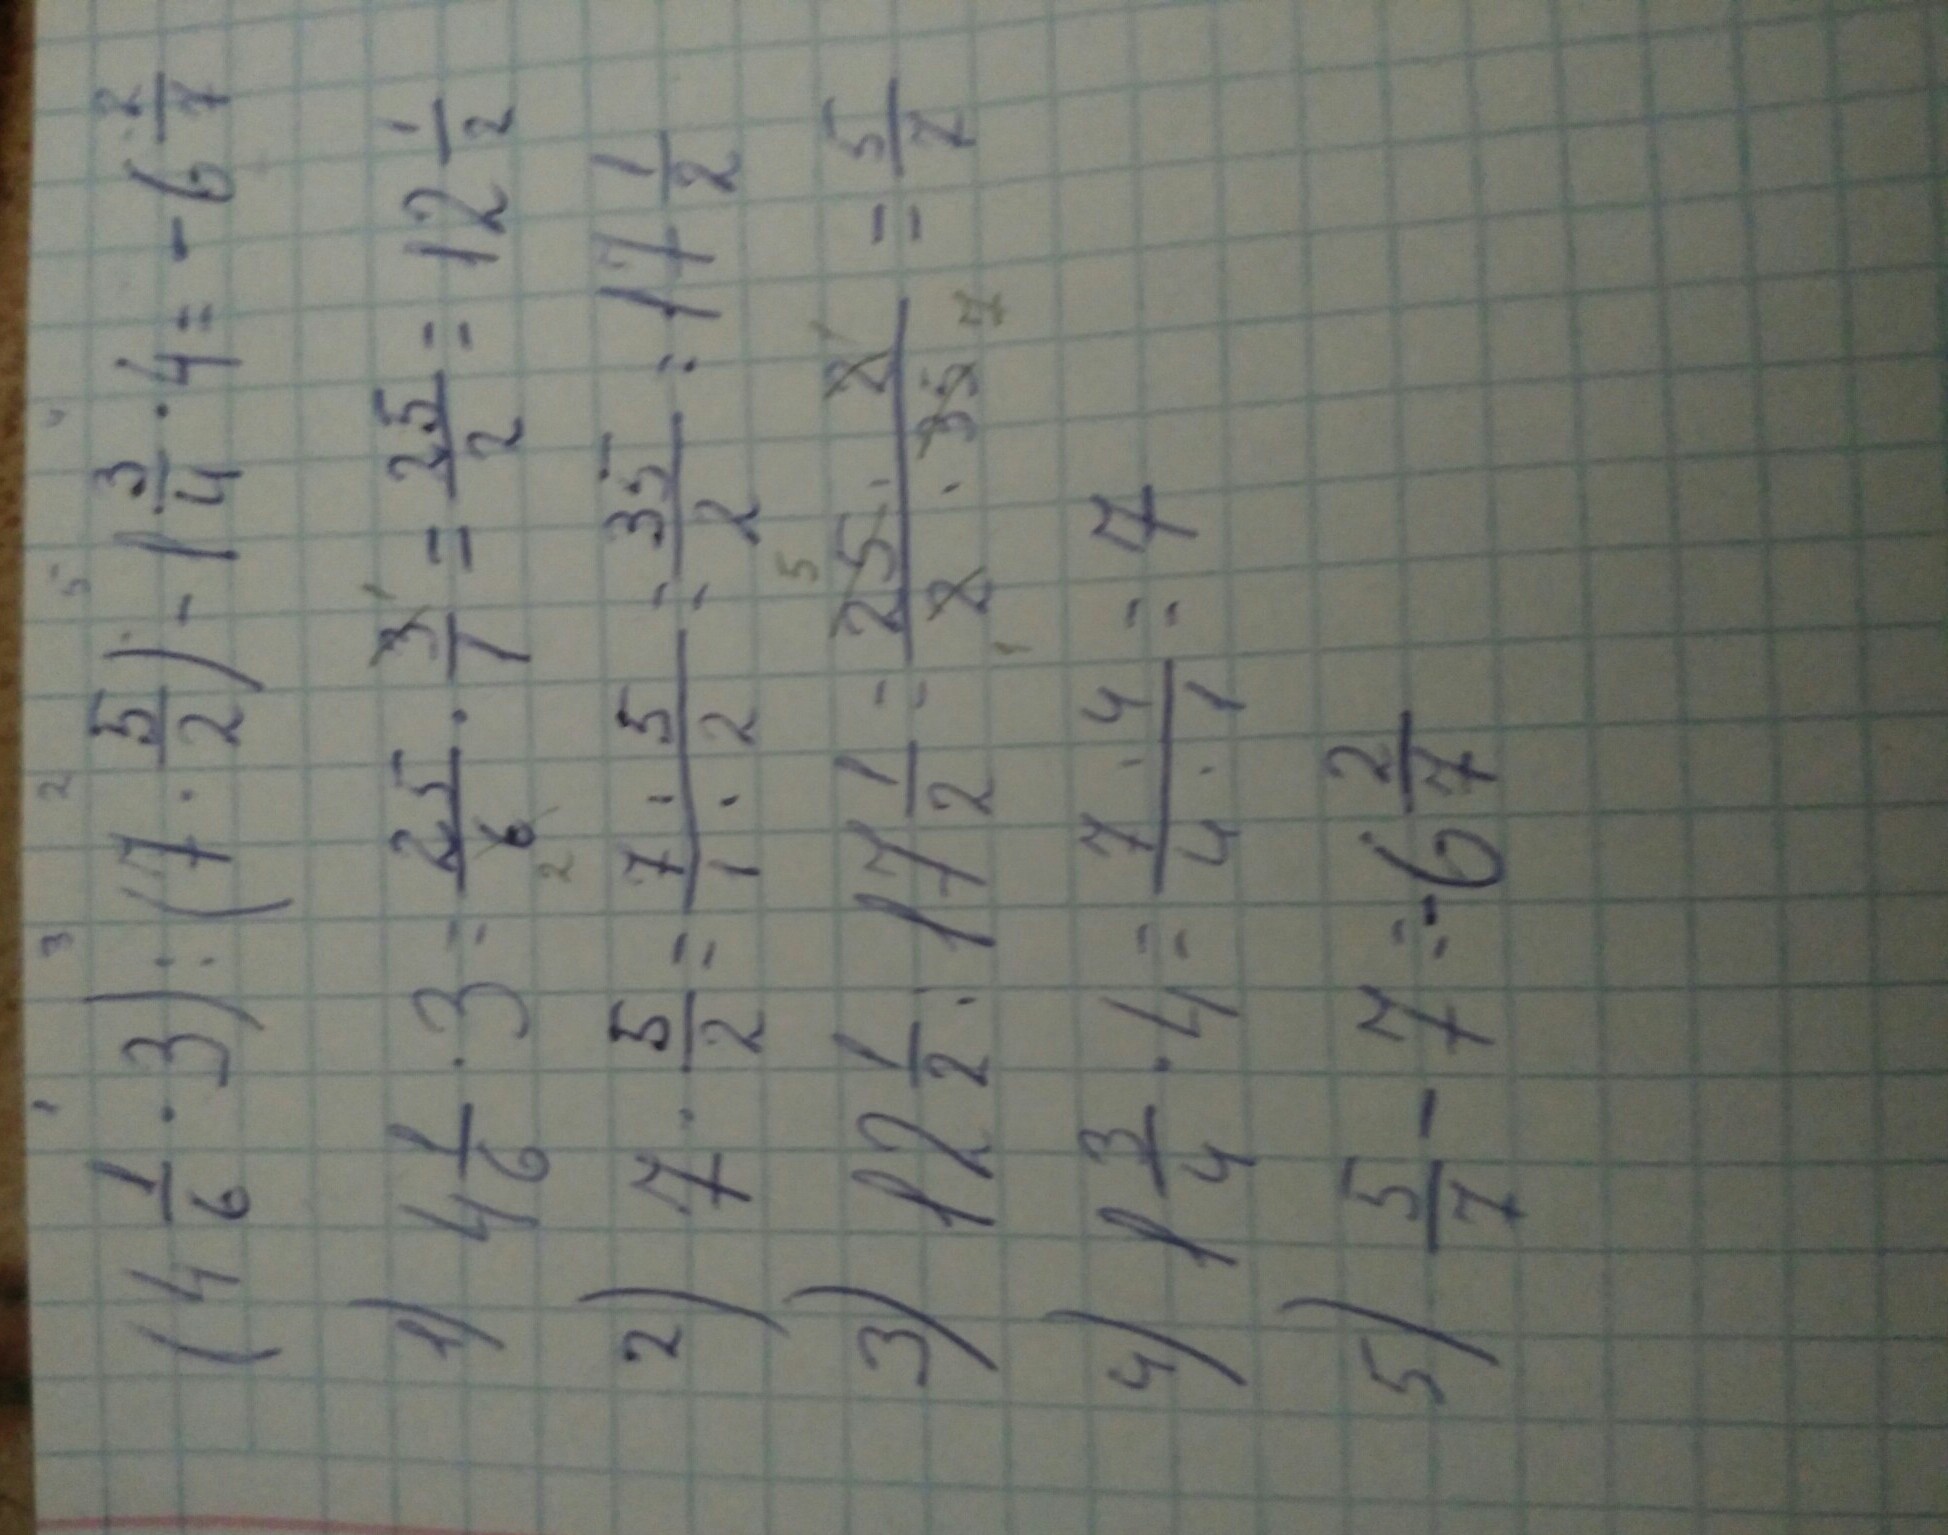 1 3 2 5 4
(4 1/6 · 3) : (7 · 5/2) - 1 3/4 · 4 = -6 2/7
1) 4 1/6 · 3 = 25/6 · 3/1 = 25/2 = 12 1/2
2 1
2) 7 · 5/2 = 7 · 5/1 · 2 = 35/2 = 17 1/2
5 1
3) 12 1/2 : 17 1/2 = 25 · 2/2 · 35 = 5/7
1 7
4) 1 3/4 · 4 = 7 · 4/4 · 1 = 7
5) 5/7 - 7 = -6 2/7